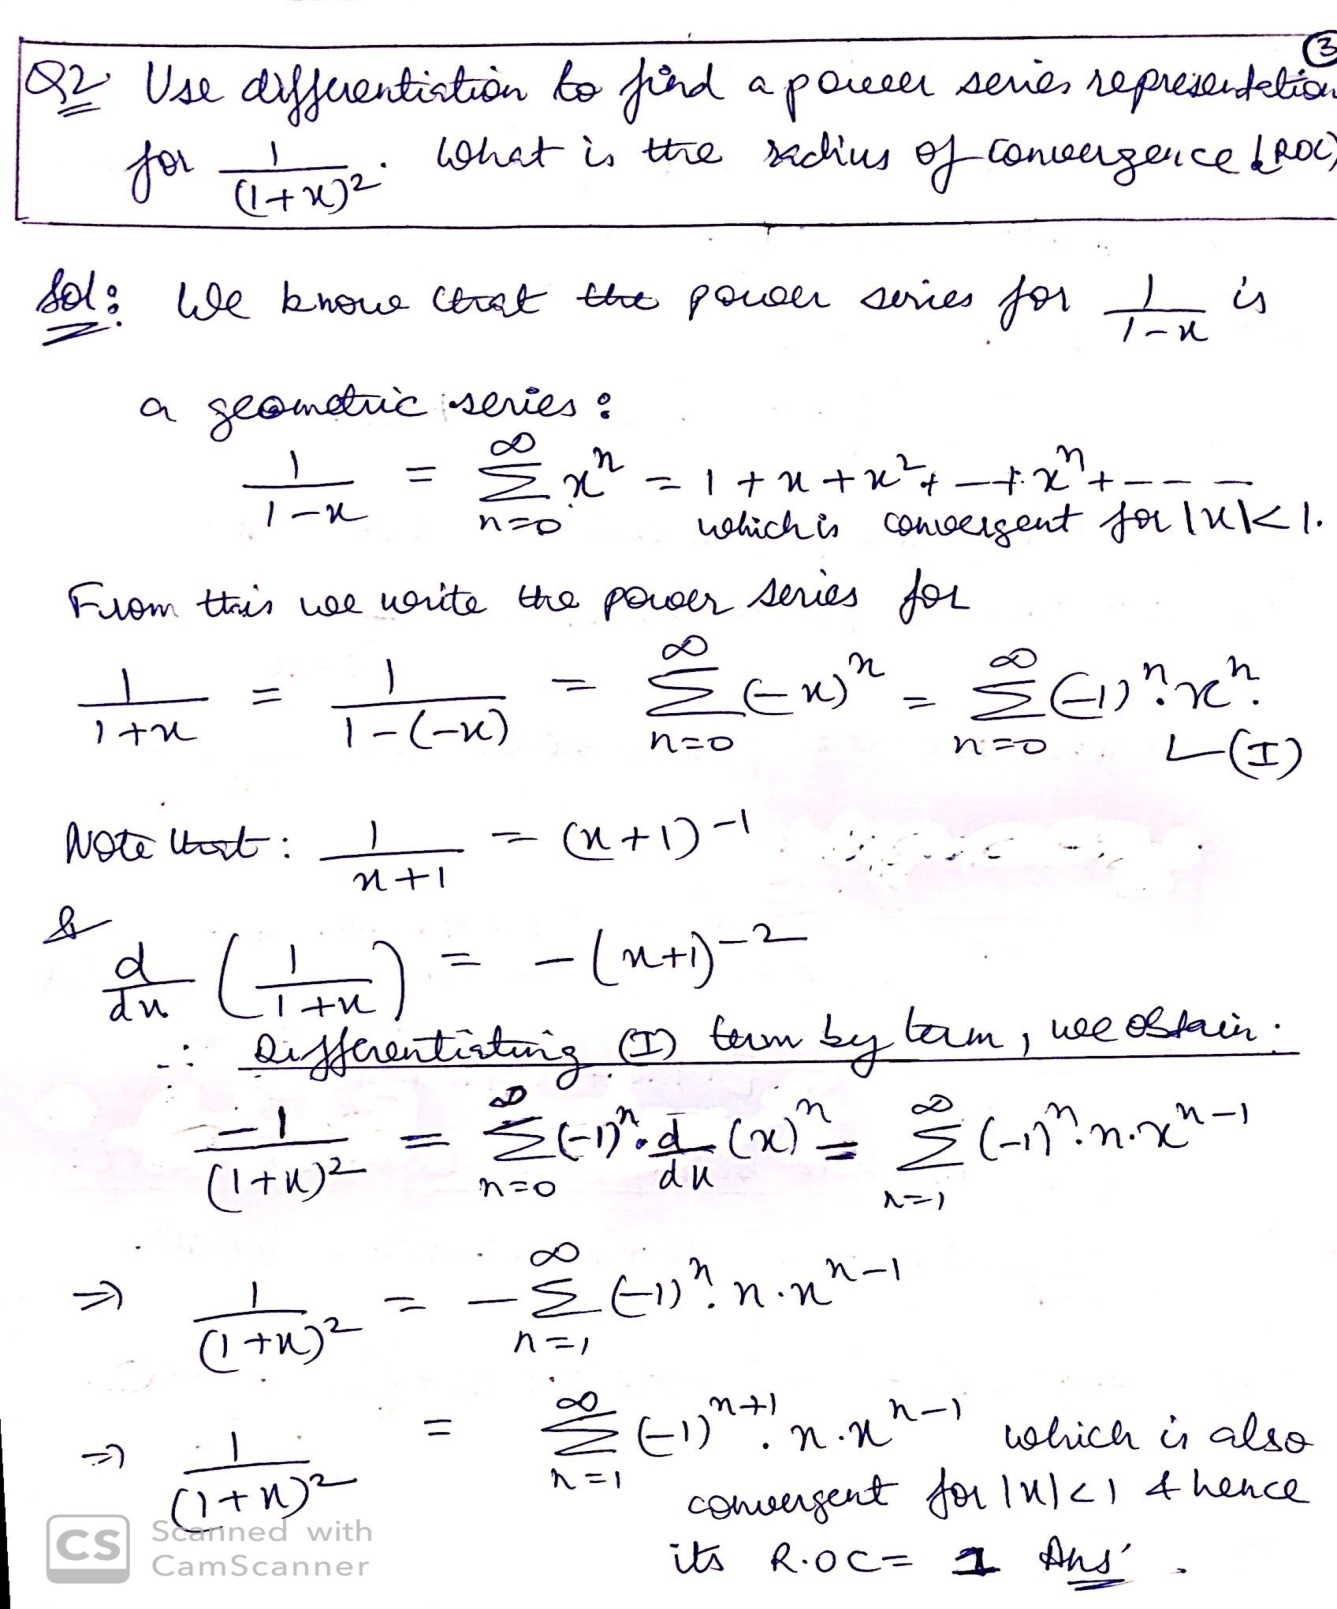 ③
Q2 Use differentiation to find a power series representation
for 1/(1+x)². What is the radius of convergence (ROC)
Sol: We know that the power series for 1/(1-x) is
a geometric series:
1/(1-x) = ∑_{n=0}^{∞} x^n = 1 + x + x² + --+ x^n + ---
which is convergent for |x|<1.
From this we write the power series for
1/(1+x) = 1/(1-(-x)) = ∑_{n=0}^{∞} (-x)^n = ∑_{n=0}^{∞} (-1)^n · x^n.
└(I)
Note that: 1/(x+1) = (x+1)^{-1}
& d/dx (1/(1+x)) = -(x+1)^{-2}
∴ Differentiating (I) term by term, we obtain:
-1/(1+x)² = ∑_{n=0}^{∞} (-1)^n · d/dx (x)^n = ∑_{n=1}^{∞} (-1)^n · n · x^{n-1}
⇒ 1/(1+x)² = -∑_{n=1}^{∞} (-1)^n · n · x^{n-1}
⇒ 1/(1+x)² = ∑_{n=1}^{∞} (-1)^{n+1} · n · x^{n-1} which is also
convergent for |x|<1 & hence
its R.OC = 1 Ans.
CS Scanned with
CamScanner